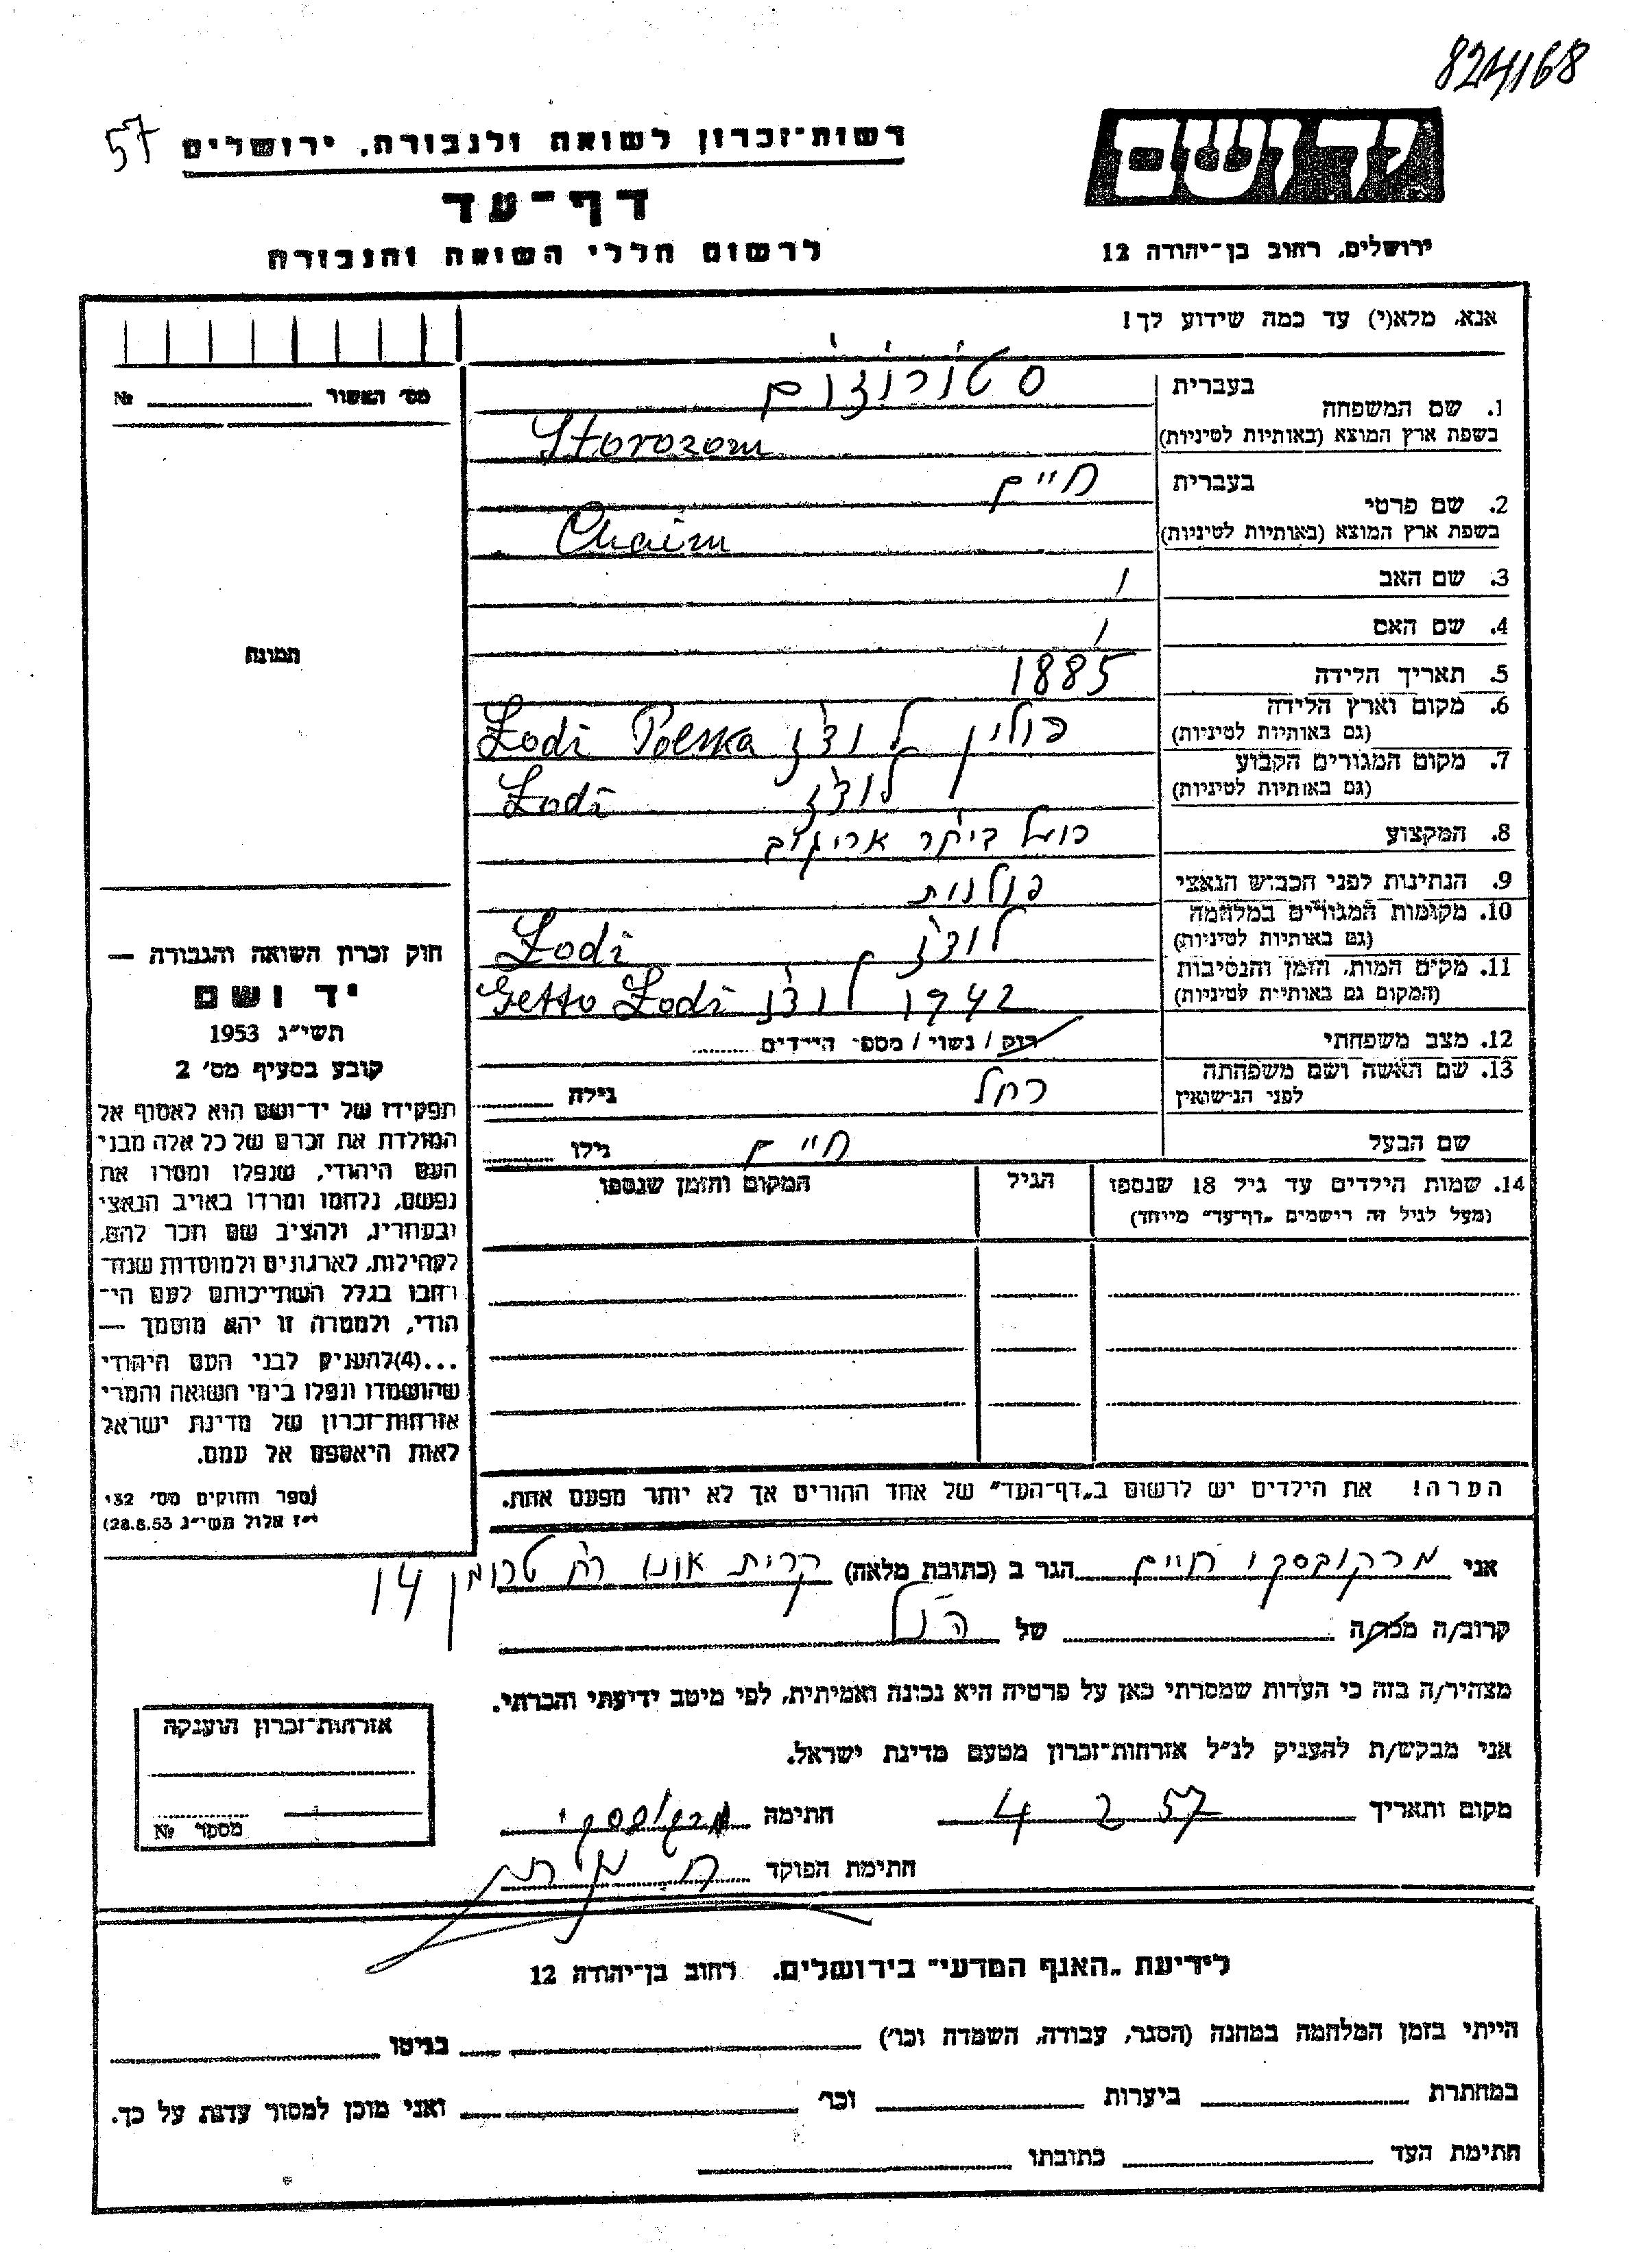 824168
57
רשות-זכרון לשואה ולגבורה, ירושלים
יד ושם
דף-עד
לרשום חללי השואה והגבורה
ירושלים, רחוב בן-יהודה 12
אנא, מלא(י) עד כמה שידוע לך!
מס' האשור № 
1. שם המשפחה
בעברית סטורוזום
בשפת ארץ המוצא (באותיות לטיניות) Storozom
2. שם פרטי
בעברית חיים
בשפת ארץ המוצא (באותיות לטיניות) Chaim
3. שם האב /
4. שם האם /
תמונה
5. תאריך הלידה 1885
6. מקום וארץ הלידה
(גם באותיות לטיניות) פולין לודז' Łodź Polska
7. מקום המגורים הקבוע
(גם באותיות לטיניות) לודז' Łodź
8. המקצוע
9. הנתינות לפני הכבוש הנאצי פולנית
10. מקומות המגורים במלחמה
(גם באותיות לטיניות) לודז' Łodź
11. מקום המות, הזמן והנסיבות
(המקום גם באותיות לטיניות) 1942 לודז' Getto Łodź
12. מצב משפחתי רוק / נשוי / מספר הילדים
13. שם האשה ושם משפחתה
לפני הנישואין רחל גילה
שם הבעל חיים גילו
14. שמות הילדים עד גיל 18 שנספו
(מעל לגיל זה רישמים "דף-עד" מייחד)
הגיל
המקום והזמן שנספו
הערה! את הילדים יש לרשום ב"דף-העד" של אחד ההורים אך לא יותר מפעם אחת.
חוק זכרון השואה והגבורה —
יד ושם
תשי"ג 1953
קובע בסעיף מס' 2
תפקידו של יד-ושם הוא לאסוף אל
המולדת את זכרם של כל אלה מבני
העם היהודי, שנפלו ומסרו את
נפשם, נלחמו ומרדו באויב הנאצי
ובעוזריו, ולהציב שם וזכר להם,
לקהילות, לארגונים ולמוסדות שנח-
רבו בגלל השתייכותם לעם הי-
הודי, ולמטרה זו יהא מוסמך —
...(4)להעניק לבני העם היהודי
שהושמדו ונפלו בימי השואה והמרי
אזרחות-זכרון של מדינת ישראל
לאות היאספם אל עמם.
(ספר החוקים מס' 132
י"ז אלול תשי"ג 28.8.53)
אני מרקובסקי חיים הגר ב (כתובת מלאה) קרית אונו רח' טרומן 14
קרוב/ה מכר/ה של הנ"ל
מצהיר/ה בזה כי העדות שמסרתי כאן על פרטיה היא נכונה ואמיתית, לפי מיטב ידיעתי והכרתי.
אני מבקש/ת להעניק לנ"ל אזרחות-זכרון מטעם מדינת ישראל.
מקום ותאריך 4 2 57 חתימה מרקובסקי
חתימת הפוקד
אזרחות-זכרון הוענקה
מספר №
לידיעת "האגף המדעי" בירושלים. רחוב בן-יהודה 12
הייתי בזמן המלחמה במחנה (הסגר, עבודה, השמדה וכו') בגיטו
במחתרת ביערות וכו' ואני מוכן למסור עדות על כך.
חתימת העד כתובתו